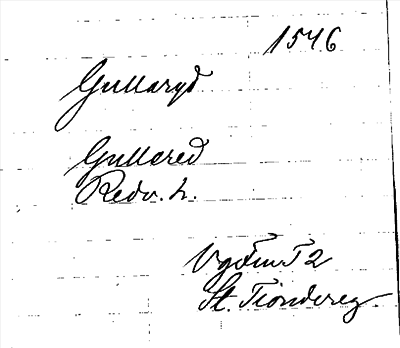 1546
Gullaryd
Gullered
Redv. h.
Vgötmt 2
St. Tiondereg.